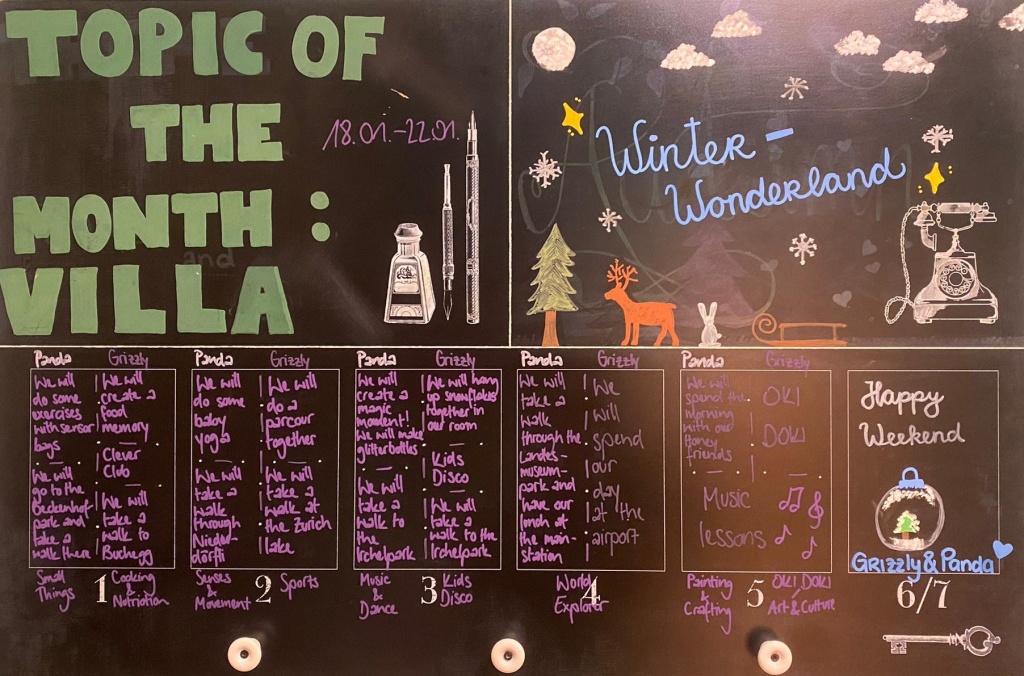 TOPIC OF
THE
MONTH :
VILLA
and
18.01.-22.01.
Winter -
Wonderland
Panda
We will
do some
exercises
with sensor
bags
We will
go to the
Beckenhof
park and
take a
walk there
Grizzly
We will
create a
food
memory
Clever
Club
We will
take a
walk to
Buchegg
Small
Things
1
Cooking
&
Nutriation
Panda
We will
do some
baby
yoga
We will
take a
walk
through
Nieder-
dörfli
Grizzly
We will
do a
parcour
together
We will
take a
walk at
the Zürich
lake
Senses
&
Movement
2
Sports
Panda
We will
create a
magic
moment!
We will make
glitterbottles
We will
take a
walk to
the
Irchelpark
Grizzly
We will hang
up snowflakes
together in
our room
Kids
Disco
We will
take a
walk to the
Irchelpark
Music
&
Dance
3
Kids
Disco
Panda
We will
take a
walk
through the
Landes-
museum-
park and
have our
lunch at
the main-
station
Grizzly
We
will
spend
our
day
at the
airport
World
Explorer
4
Panda
We will
spend the
morning
with our
Honey
friends
Grizzly
OKI
DOKI
Music
lessons
Painting
&
Crafting
5
OKI DOKI
Art & Culture
Happy
Weekend
Grizzly & Panda
6/7